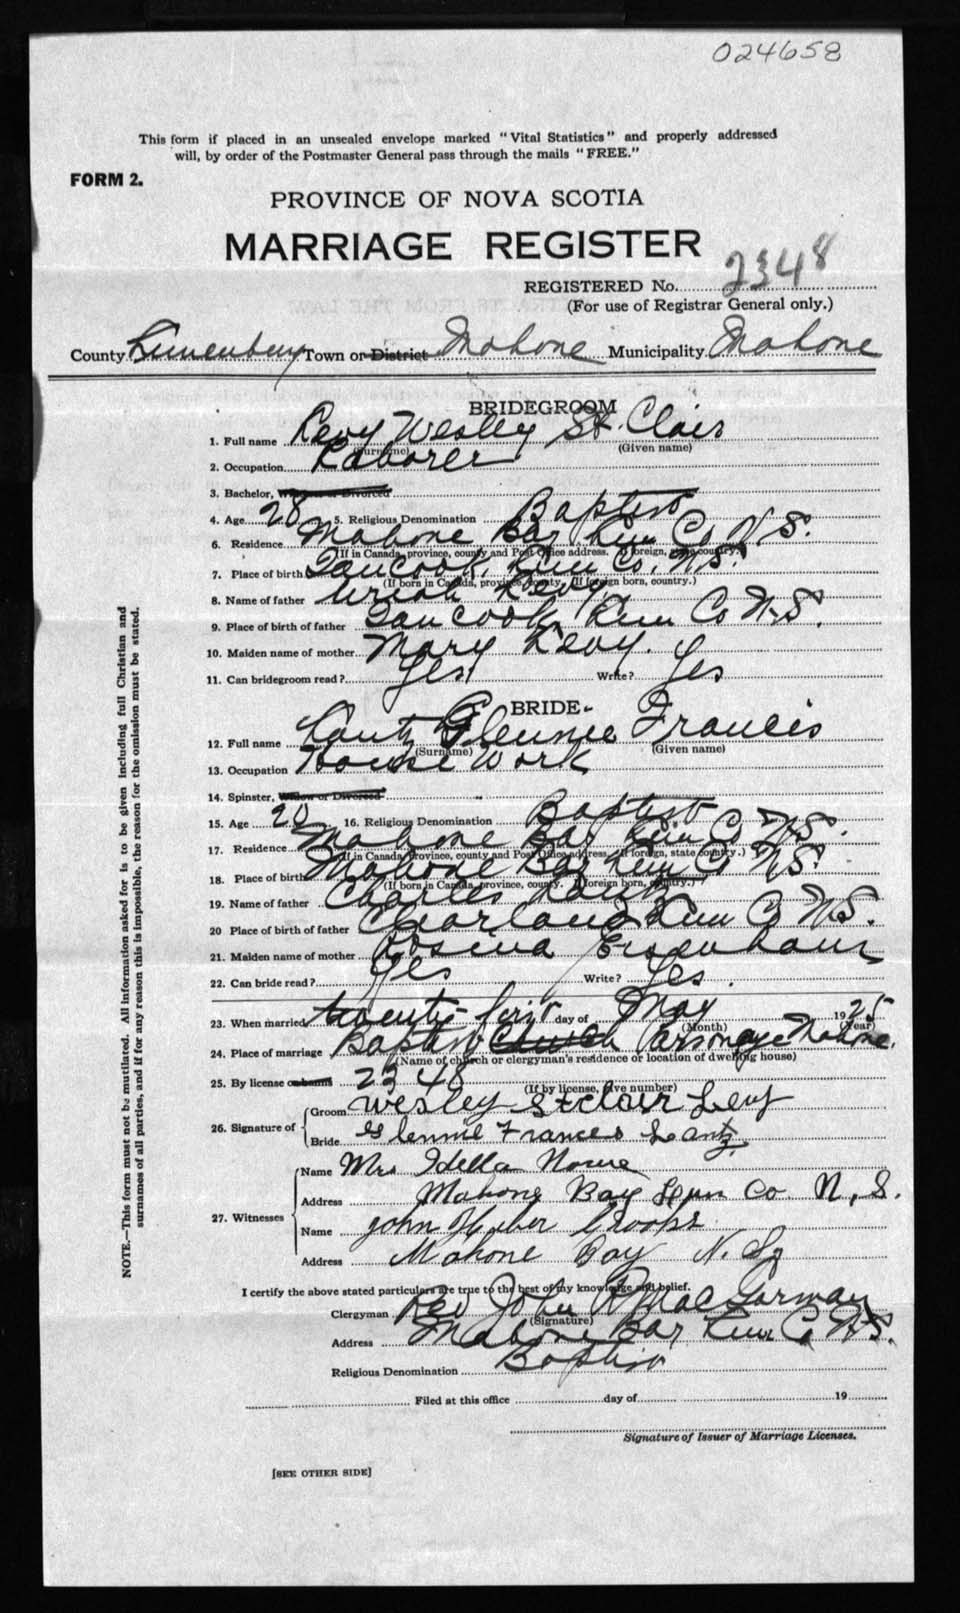 024658
This form if placed in an unsealed envelope marked "Vital Statistics" and properly addressed
will, by order of the Postmaster General pass through the mails "FREE."
FORM 2.
PROVINCE OF NOVA SCOTIA
MARRIAGE REGISTER
REGISTERED No. 2348
(For use of Registrar General only.)
County Lunenburg Town or District Mahone Municipality Mahone
BRIDEGROOM
1. Full name Levy Wesley St. Clair
(Surname) (Given name)
2. Occupation Laborer
3. Bachelor, Widower or Divorced
4. Age 28 5. Religious Denomination Baptist
6. Residence Mahone Bay Lun Co N.S.
(If in Canada, province, county and Post Office address. If foreign, state country.)
7. Place of birth Tancook, Lun Co. N.S.
(If born in Canada, province, county. If foreign born, country.)
8. Name of father Uriah Levy
9. Place of birth of father Tancook Lun Co N.S.
10. Maiden name of mother Mary Levy.
11. Can bridegroom read? Yes Write? Yes
BRIDE
12. Full name Lantz Glennie Francis
(Surname) (Given name)
13. Occupation House Work
14. Spinster, Widow or Divorced
15. Age 20 16. Religious Denomination Baptist
17. Residence Mahone Bay Lun Co N.S.
(If in Canada, province, county and Post Office address. If foreign, state country.)
18. Place of birth Mahone Bay Lun Co N.S.
(If born in Canada, province, county. If foreign born, country.)
19. Name of father Charles Lantz
20 Place of birth of father Clearland Lun Co N.S.
21. Maiden name of mother Rosina Eisenhaur
22. Can bride read? Yes Write? Yes.
23. When married twenty-first day of May 1925
(Month) (Year)
24. Place of marriage Baptist Church Parsonage Mahone.
(Name of church or clergyman's residence or location of dwelling house)
25. By license or banns 2348
(If by license, give number)
26. Signature of Groom Wesley StClair Levy
Bride Glennie Frances Lantz.
27. Witnesses Name Mrs Idella Nowe
Address Mahone Bay Lun Co. N.S.
Name John Huber Crooks
Address Mahone Bay N.S.
I certify the above stated particulars are true to the best of my knowledge and belief.
Clergyman Rev John R MacGorman
(Signature)
Address Mahone Bay Lun Co N.S.
Religious Denomination Baptist
Filed at this office day of 19
Signature of Issuer of Marriage Licenses.
[SEE OTHER SIDE]
NOTE.—This form must not be mutilated. All information asked for is to be given including full Christian and
surnames of all parties, and if for any reason this is impossible, the reason for the omission must be stated.